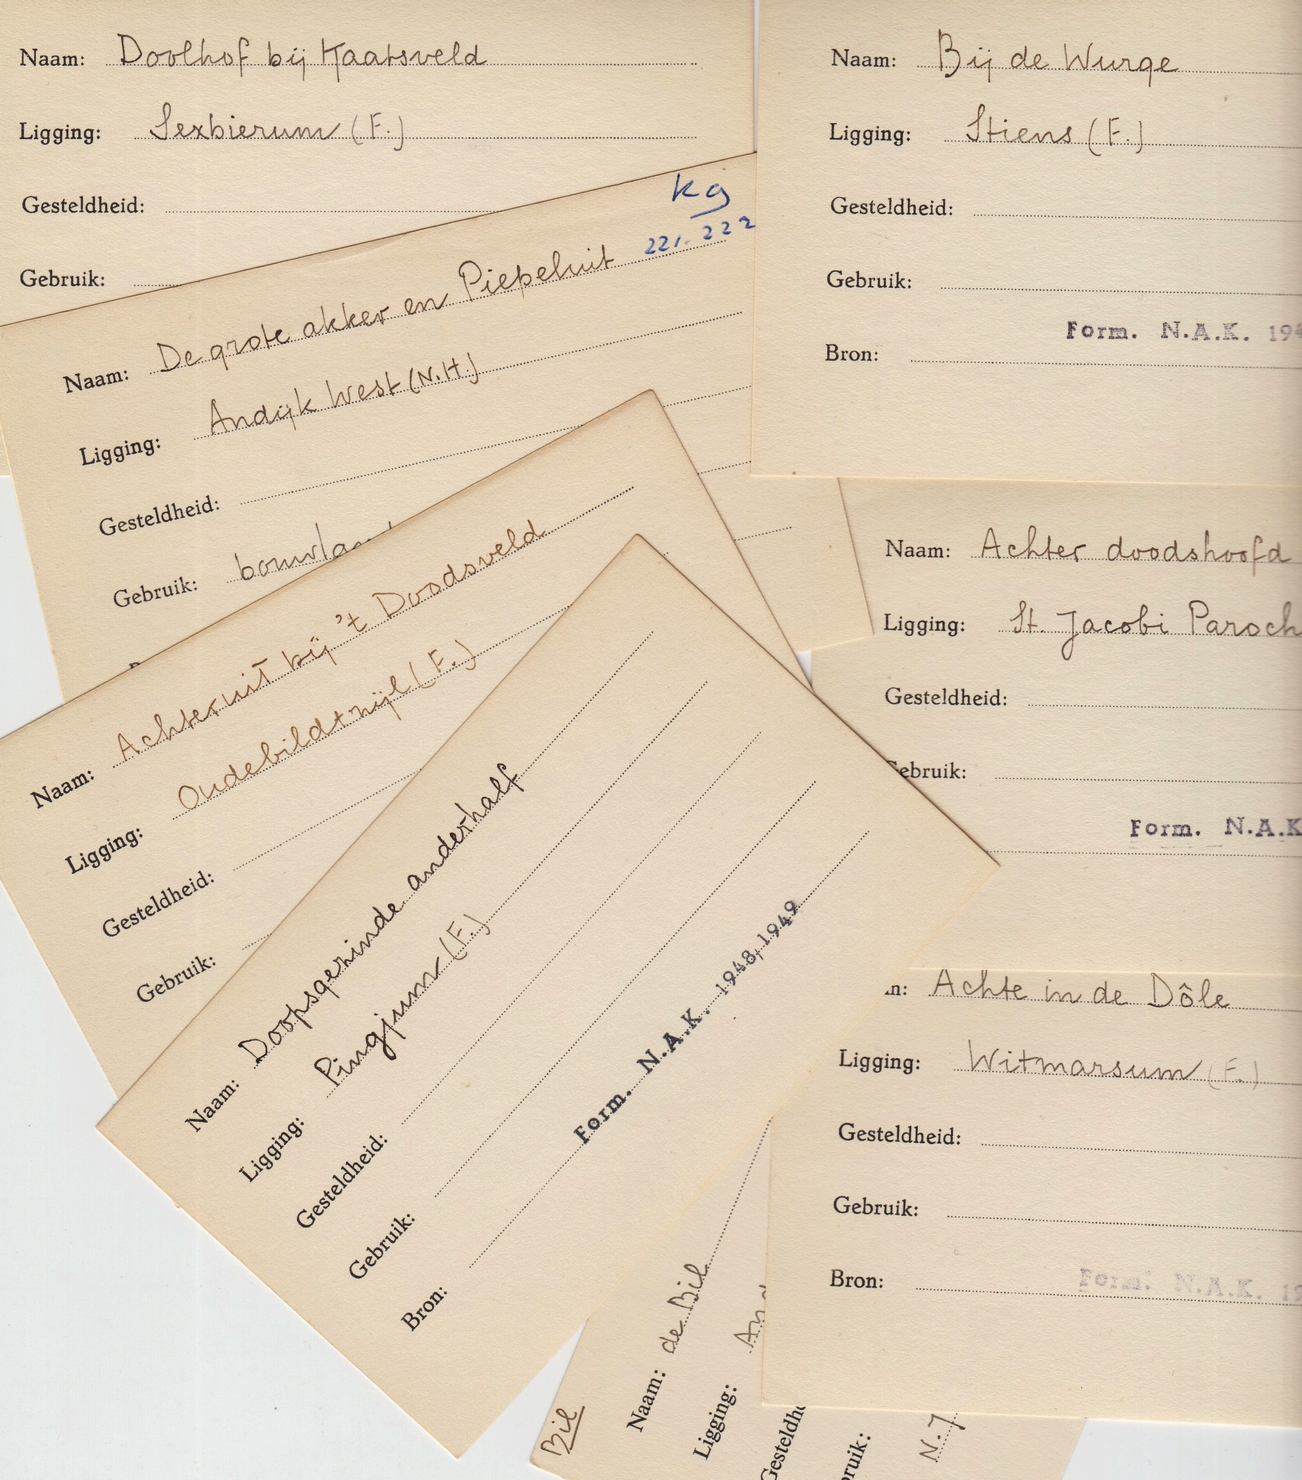 Naam: Doolhof bij Kaatsveld
Ligging: Sexbierum (F.)
Gesteldheid:
Gebruik:
Naam: Bij de Wurge
Ligging: Stiens (F.)
Gesteldheid:
Gebruik:
Form. N.A.K. 194
Bron:
kg
221. 222
Naam: De grote akker en Piepeluit
Ligging: Andijk West (N.H.)
Gesteldheid:
Gebruik: bouwlan
Naam: Achter doodshoofd
Ligging: St. Jacobi Paroch
Gesteldheid:
ebruik:
Form. N.A.K
Naam: Achteruit bij 't Doodsveld
Ligging: Oudebildtzijl (F.)
Gesteldheid:
Gebruik:
Naam: Doopsgezinde anderhalf
Ligging: Pingjum (F.)
Gesteldheid:
Gebruik:
Form. N.A.K. 1948, 1949
Bron:
m: Achte in de Dôle
Ligging: Witmarsum (F.)
Gesteldheid:
Gebruik:
Bron: Form. N.A.K. 19
Bil
Naam: de Bil
Ligging: And
Gesteldh
bruik: